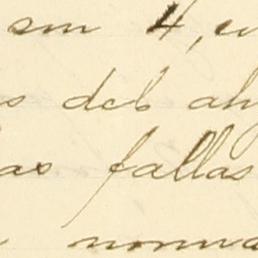 sm 4,
s del ah
as fallas
norma